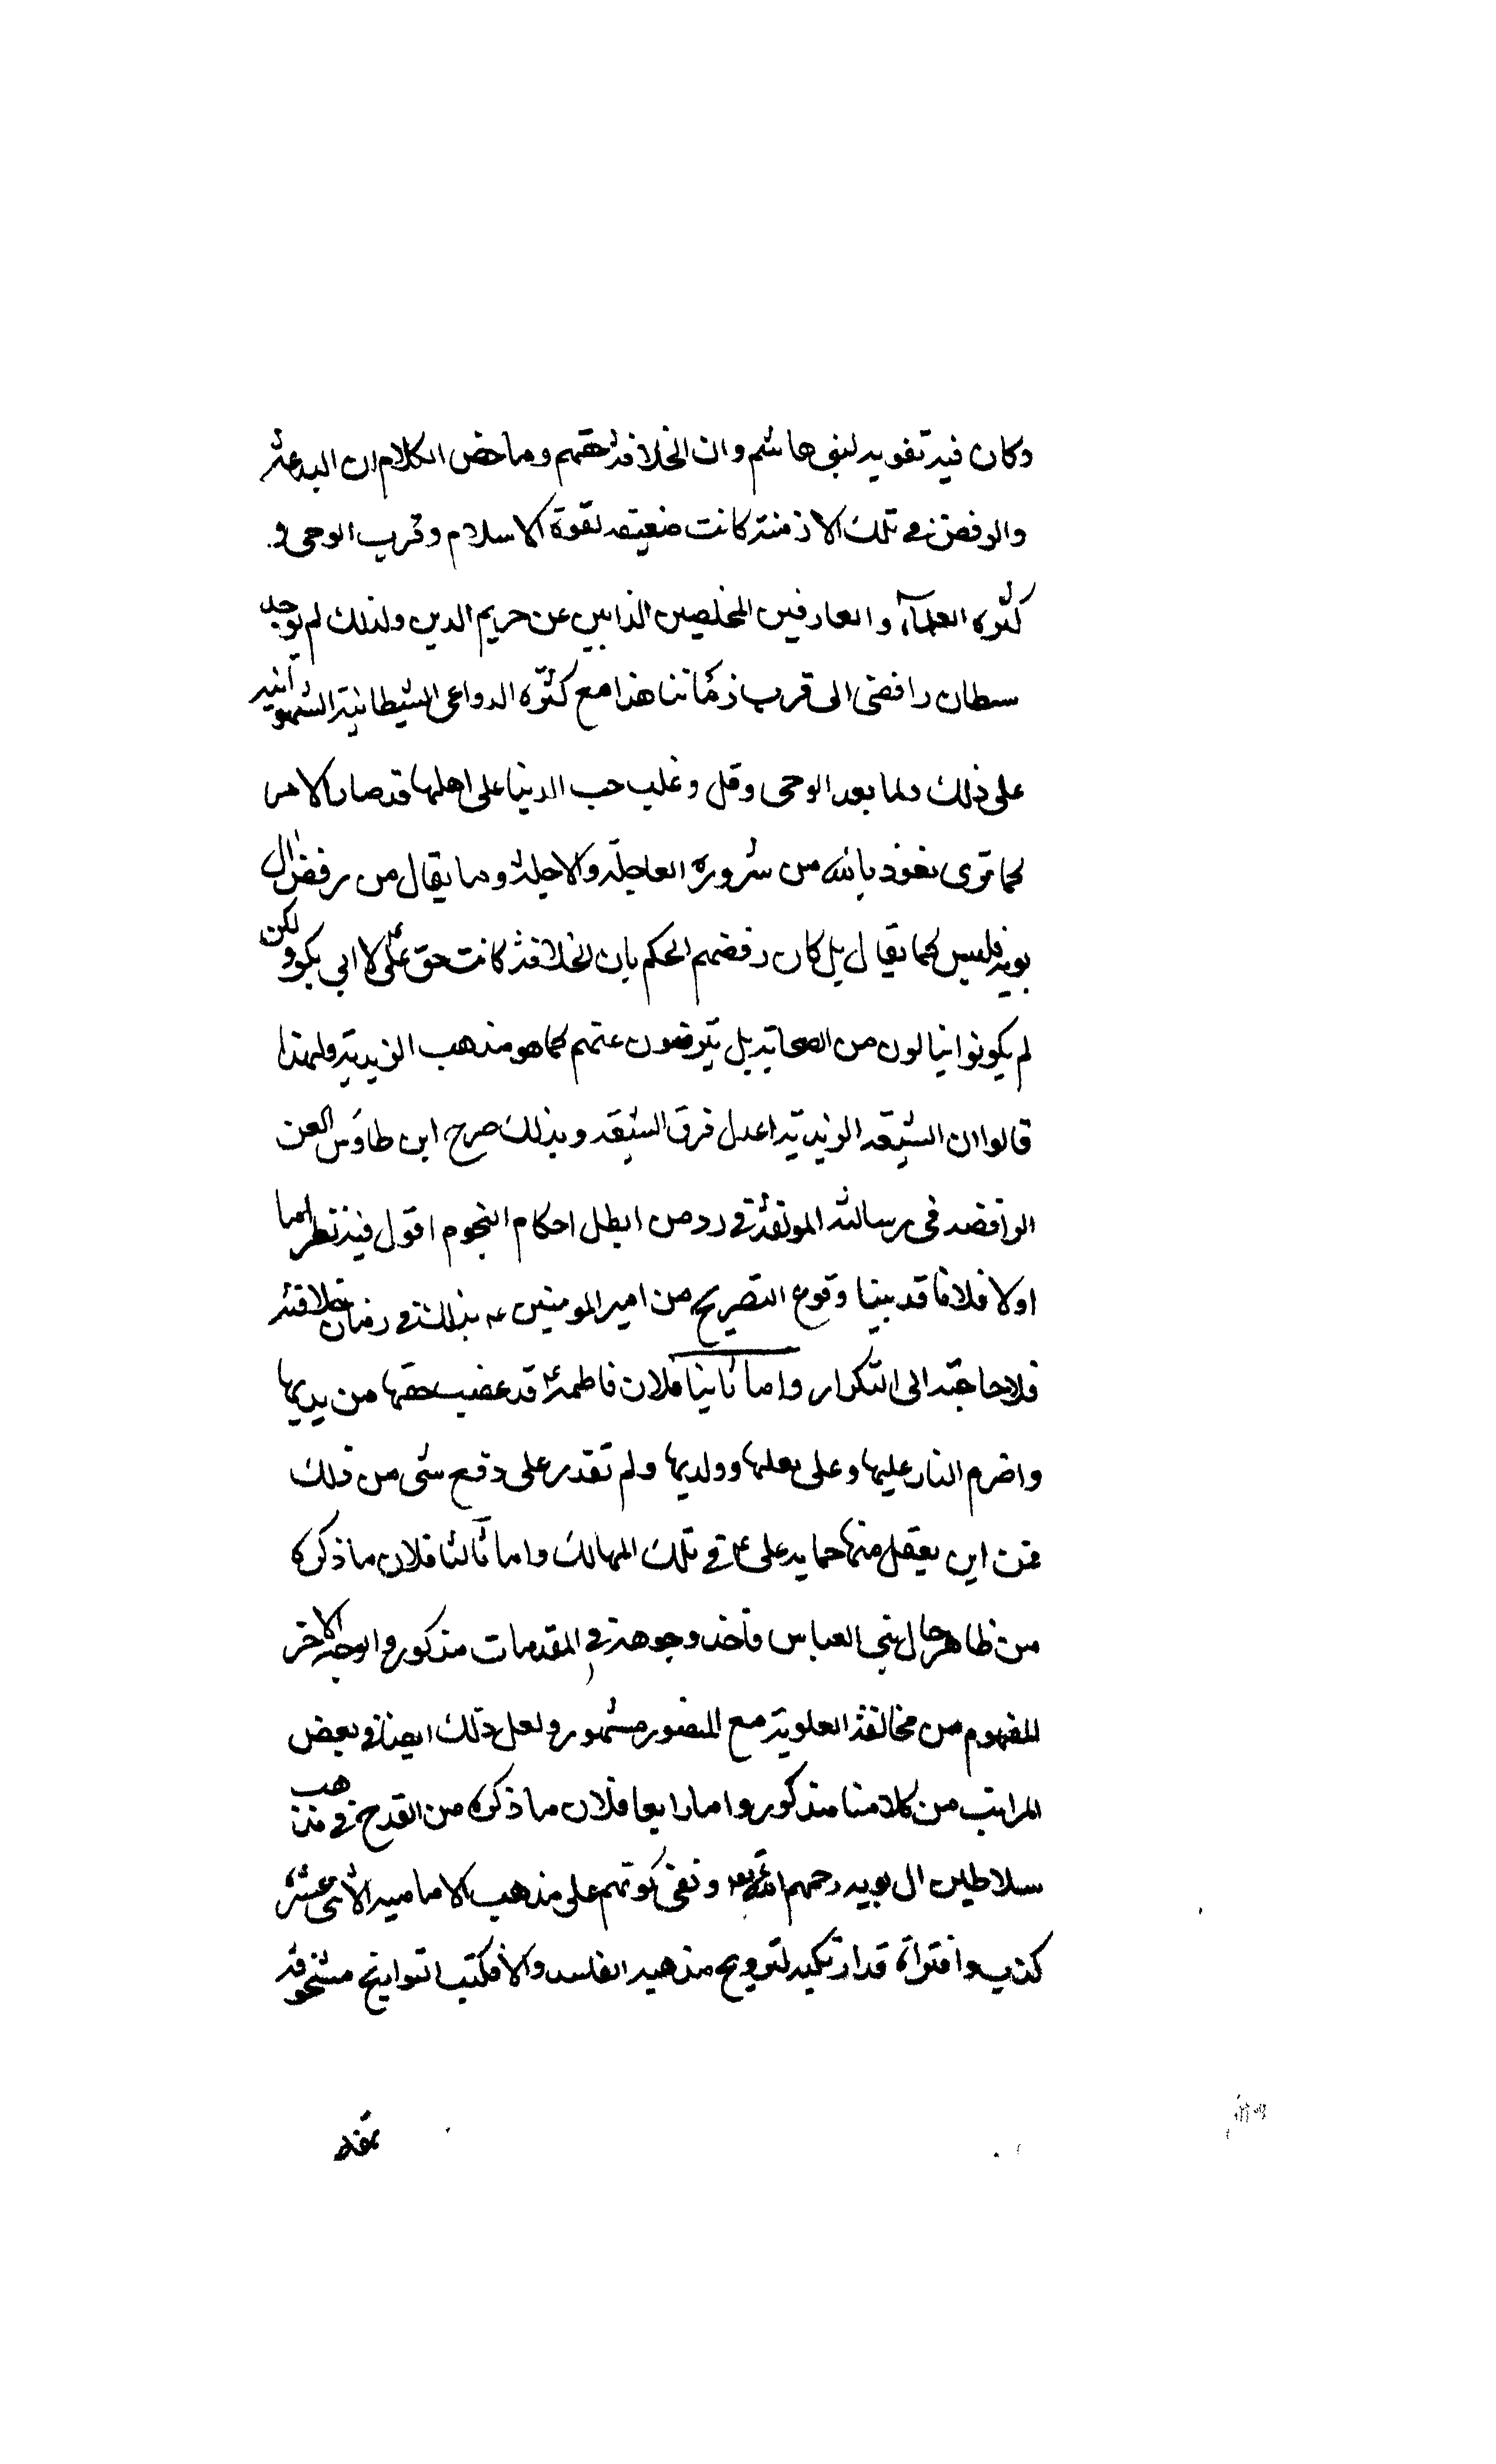 وكان فيه تقويه لبنى هاشم وان الخلافة حقهم وماحض الكلام ان البدعة
والرفض في تلك الازمنة كانت ضعيفه لقوة الاسلام وقرب الوحى و
كثره العلمآء والعارفين المخلصين الذابين عن حريم الدين ولذلك لم يوجد
سطان رافضى الى قرب زماننا هذا مع كثره الدواعى الشيطانية الشهوانيه
على ذلك ولما بعد الوحى وقل وغلب حب الدنيا على اهلها قد صار الامر
كما ترى نعوذ بالله من شروره العاجلة والاجلة وما يقال من رفض ال
بويه فليس كما يقال بل كان رفضهم الحكم بان الخلافة كانت حق على لا ابي بكر ولكن
لم يكونوا ينالون من الصحابة بل يترضون عنهم كما هو مذهب الزيدية ولهذا
قالوا ان الشيعه الزيديه اعدل فرق الشيعه وبذلك صرح ابن طاوس العن
الرافضه في رسالته المولفة في رد من ابطل احكام النجوم اقول فيه نظر اما
اولا فلانا قد بينا وقوع التصريح من امير المومنين ع بذلك في زمان خلافته
فلا حاجة الى التكرار واما ثانيا فلان فاطمة ع قد غصب حقها من يديها
واضرم النار عليها وعلى بعلها وولديها ولم تقدر على دفع شى من ذلك
فمن اين يعقل منها حماية على ع في تلك المهالك واما ثالثا فلان ما ذكره
من ظاهر حال بنى العباس فأخذ وجوهه في المقدمات مذكور والوجه الاخر
المفهوم من مخالفة العلوية مع المنصور مشهور ولعل ذلك ايضا في بعض
المراتب من كلامنا مذكور واما رابعا فلان ما ذكره من القدح في مذهب
سلاطين ال بويه رحمهم الله ونفى كونهم على مذهب الاماميه الاثنى عشر
كذب وافتراء قد ارتكبه لترويج مذهبه الفاسد والا فكتب التواريخ مشحونة